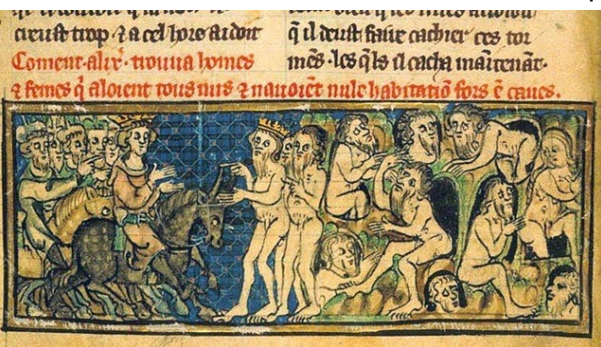 creust trop · ⁊ a cel hore auoit
Coment · alix̄ · trouua homes
q̄ il deust faire cachier ces tor
mēs · les q̄ls il cacha maintenāt ·
⁊ femes q̄ aloient tous nus ⁊ nauoiēt nule habitatiō fors ē caues.